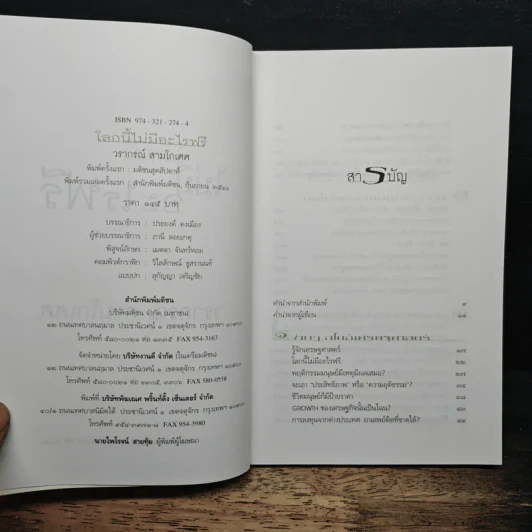 ISBN 974 - 321 - 274 - 4
โลกนี้ไม่มีอะไรฟรี
วรากรณ์ สามโกเศศ
พิมพ์ครั้งแรก : มติชนสุดสัปดาห์
พิมพ์รวมเล่มครั้งแรก : สำนักพิมพ์มติชน, กันยายน
ราคา ๑๔๕ บาท
บรรณาธิการ : ประยงค์ คงเมือง
ผู้ช่วยบรรณาธิการ : ภานี ลอยเกตุ
พิสูจน์อักษร : เมตตา จันทร์หอม
คอมพิวเตอร์กราฟิก : วิไลลักษณ์
แบบปก : สุกัญญา เจริญชัย
สำนักพิมพ์มติชน
บริษัทมติชน จำกัด (มหาชน)
๑๒ ถนนเทศบาลนฤมาล ประชานิเวศน์ ๑ เขตจตุจักร กรุงเทพฯ ๑๐๙๐๐
โทรศัพท์ ๕๘๐-๐๐๒๑ ต่อ ๑๒๓๕ FAX 954-3167
จัดจำหน่ายโดย บริษัทงานดี จำกัด (ในเครือมติชน)
๑๒ ถนนเทศบาลนฤมาล ประชานิเวศน์ ๑ เขตจตุจักร กรุงเทพฯ ๑๐๙๐๐
โทรศัพท์ ๕๘๐-๐๐๒๑ ต่อ FAX 580-0558
พิมพ์ที่ บริษัทพิฆเณศ พริ้นท์ติ้ง เซ็นเตอร์ จำกัด
๔๐/๑ ถนนเทศบาลนิมิตใต้ ประชานิเวศน์ ๑ เขตจตุจักร กรุงเทพฯ
โทรศัพท์ FAX 954-3980
นายไพโรจน์ สายทุ้ม ผู้พิมพ์ผู้โฆษณา
สารบัญ
คำนำจากสำนักพิมพ์ ๙
คำนำจากผู้เขียน ๑๑
รู้จักเศรษฐศาสตร์ ๑๗
โลกนี้ไม่มีอะไรฟรี ๒๓
พฤติกรรมมนุษย์มีเหตุมีผลเสมอ?
จะเอา "ประสิทธิภาพ" หรือ "ความยุติธรรม"?
ชีวิตมนุษย์ก็มีป้ายราคา
GROWTH ของเศรษฐกิจนั้นเป็นไฉน?
การลงทุนจากต่างประเทศ ยาเสพย์ติดที่ขาดได้?